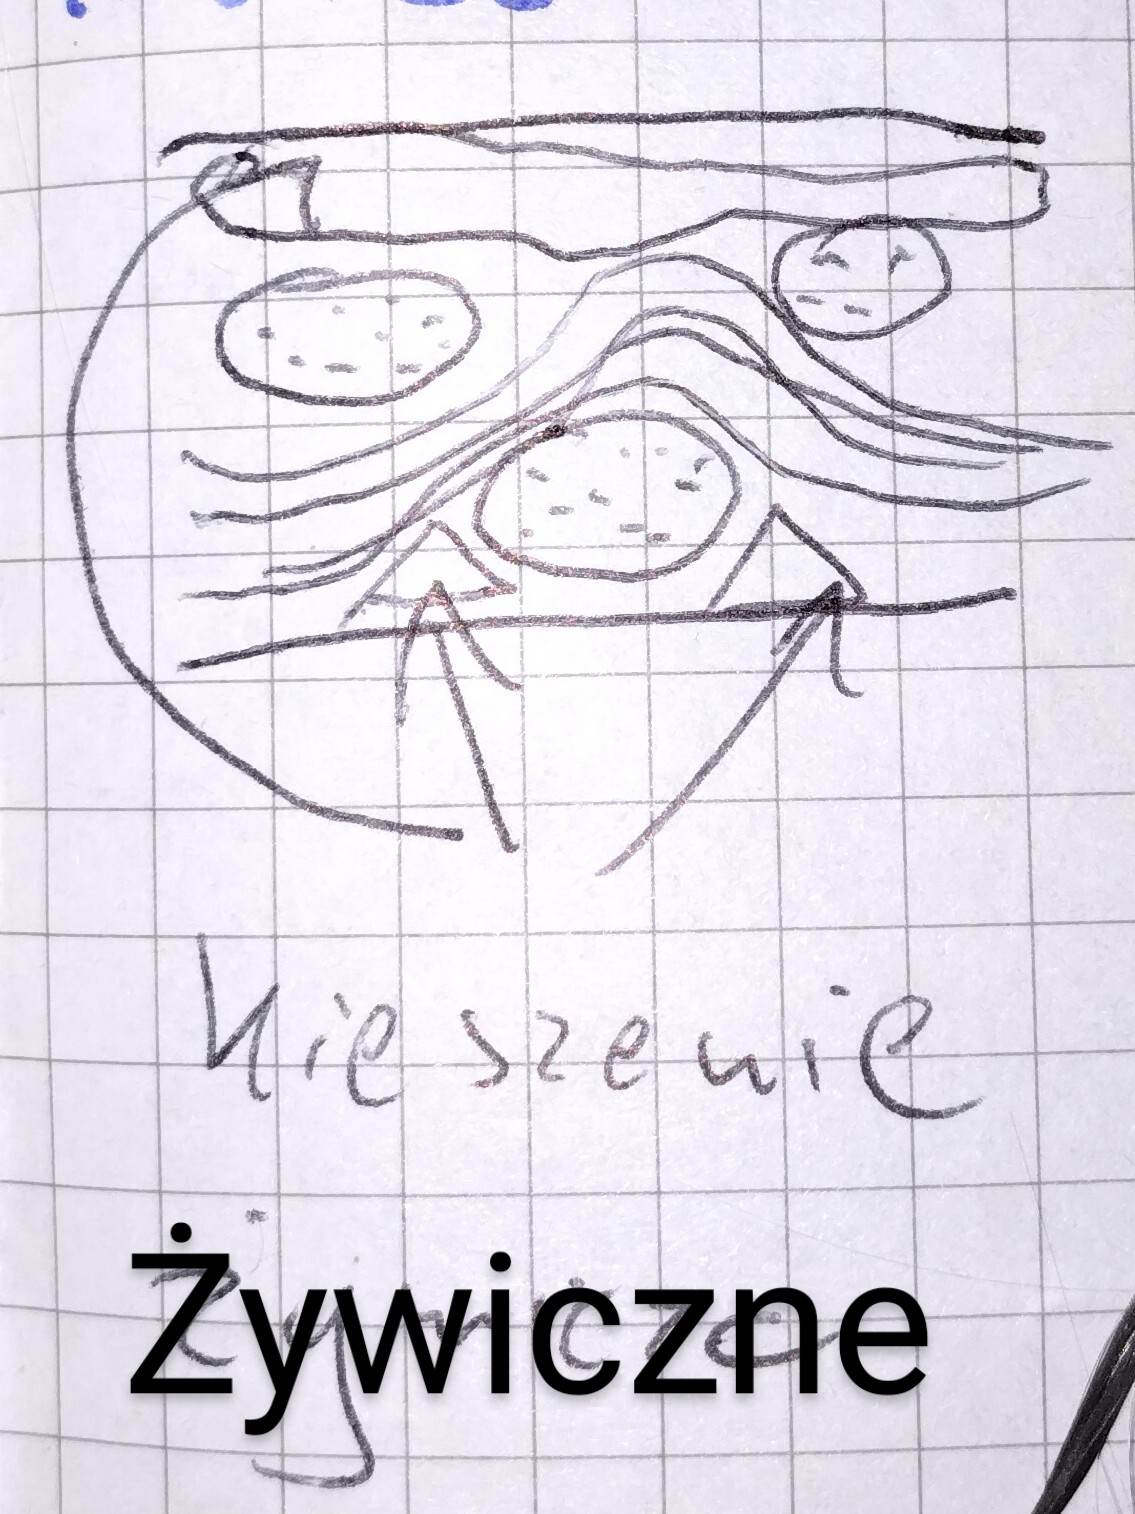 Kieszenie
Żywiczne